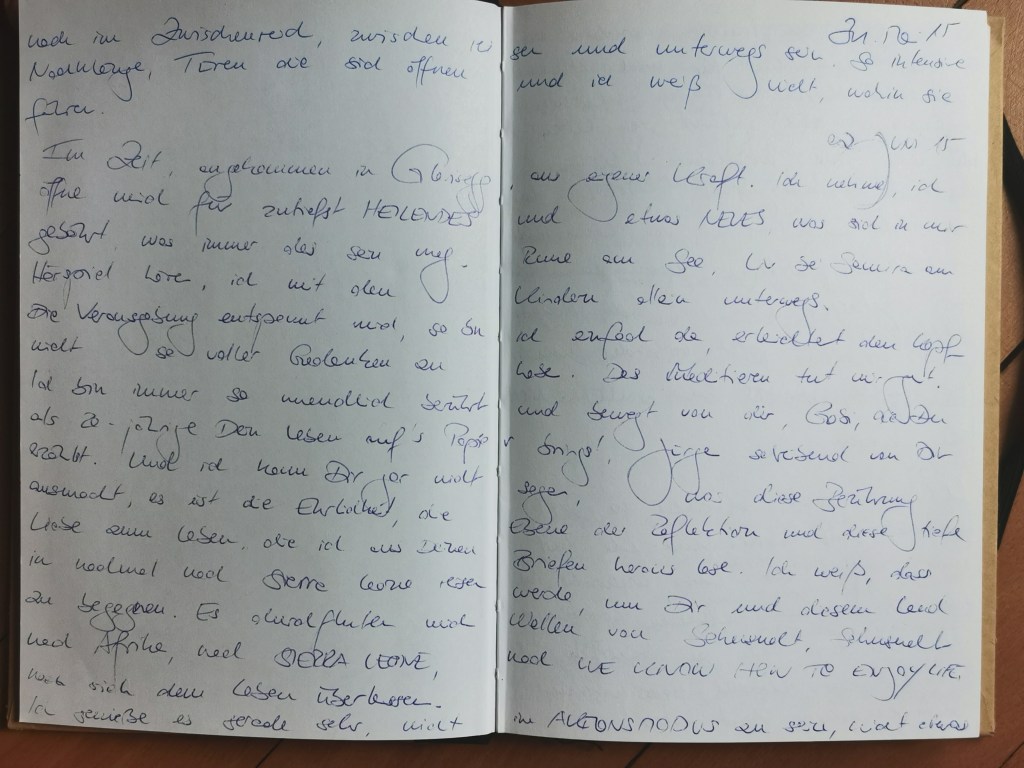 Mai 15
noch im Zwischenreich, zwischen rei sen und unterwegs sein. So intensive
Nachklänge, Türen die sich öffnen und ich weiß nicht, wohin sie
führen.
Juni 15
Im Zeit, angekommen in aus eigener Kraft. Ich nehme, ich
öffne mich für zutiefst HEILENDES und etwas NEUES was sich in mir
gebährt was immer das sein mag. Ruhe am See, Samira am
Hörspiel hören, ich mit den Kindern allein unterwegs.
Die Verausgabung entspannt mich, so bin ich einfach da, erleichtert den Kopf
nicht so voller Gedanken zu habe. Das Meditieren tut mir gut.
Ich bin immer so unendlich berührt und bewegt von dir, Gabi, wenn Du
als 20-jährige Dein Leben auf's Papier bringst! von Dir
erzählt. Und ich kann Dir gar nicht sagen, was diese Berührung
ausmacht, es ist die Ehrlichkeit, die Ebene der Reflektion und diese tiefe
Liebe zum Leben, die ich aus Deinen Briefen heraus lese. Ich weiß, dass
ich nochmal nach Sierra Leone reisen werde, um Dir und diesem Land
zu begegnen. Es durchfluten mich Wellen von Sehnsucht, Sehnsucht
nach Afrika, nach SIERRA LEONE, nach WE KNOW HOW TO ENJOY LIFE.
nach sich dem Leben überlassen.
Ich genieße es gerade sehr, nicht im AKTIONSMODUS zu sein, nicht etwas